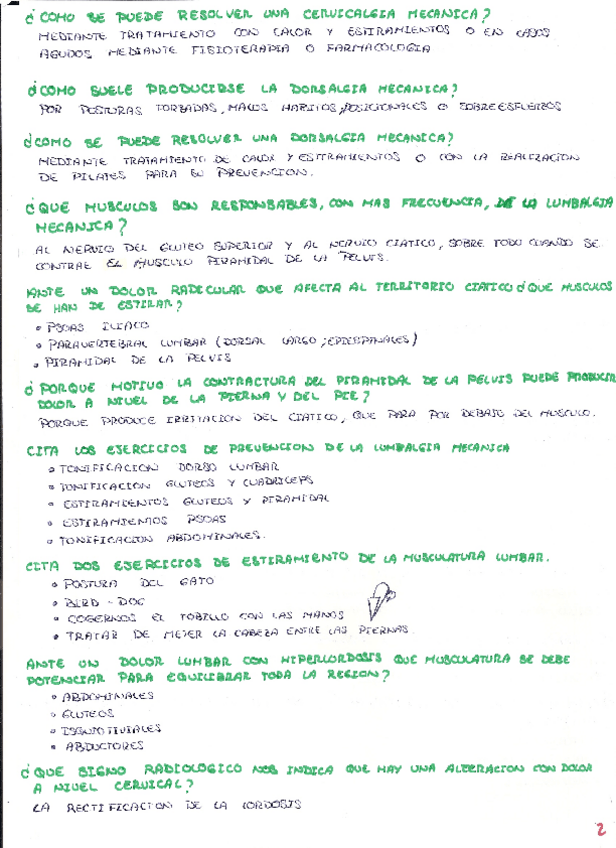 ¿COMO SE PUEDE RESOLVER UNA CERVICALGIA MECANICA?
MEDIANTE TRATAMIENTO CON CALOR Y ESTIRAMIENTOS O EN CASOS
AGUDOS MEDIANTE FISIOTERAPIA O FARMACOLOGIA
¿COMO SUELE PRODUCIRSE LA DORSALGIA MECANICA?
POR POSTURAS FORZADAS, MALOS HABITOS POSICIONALES O SOBREESFUERZOS
¿COMO SE PUEDE RESOLVER UNA DORSALGIA MECANICA?
MEDIANTE TRATAMIENTO DE CALOR Y ESTIRAMIENTOS O CON LA REALIZACION
DE PILATES PARA SU PREVENCION.
¿QUE MUSCULOS SON RESPONSABLES, CON MAS FRECUENCIA, DE LA LUMBALGIA
MECANICA?
AL NERVIO DEL GLUTEO SUPERIOR Y AL NERVIO CIATICO, SOBRE TODO CUANDO SE
CONTRAE EL MUSCULO PIRAMIDAL DE LA PELVIS.
ANTE UN DOLOR RADICULAR QUE AFECTA AL TERRITORIO CIATICO ¿QUE MUSCULOS
SE HAN DE ESTIRAR?
• PSOAS ILIACO
• PARAVERTEBRAL LUMBAR (DORSAL LARGO; EPIESPINALES)
• PIRAMIDAL DE LA PELVIS
¿PORQUE MOTIVO LA CONTRACTURA DEL PIRAMIDAL DE LA PELVIS PUEDE PRODUCIR
DOLOR A NIVEL DE LA PIERNA Y DEL PIE?
PORQUE PRODUCE IRRITACION DEL CIATICO, QUE PARA POR DEBAJO DEL MUSCULO.
CITA LOS EJERCICIOS DE PREVENCION DE LA LUMBALGIA MECANICA
• TONIFICACION DORSO LUMBAR
• TONIFICACION GLUTEOS Y CUADRICEPS
• ESTIRAMIENTOS GLUTEOS Y PIRAMIDAL
• ESTIRAMIENTOS PSOAS
• TONIFICACION ABDOMINALES.
CITA DOS EJERCICIOS DE ESTIRAMIENTO DE LA MUSCULATURA LUMBAR.
• POSTURA DEL GATO
• BIRD - DOG
• COGERNOS EL TOBILLO CON LAS MANOS
• TRATAR DE METER LA CABEZA ENTRE LAS PIERNAS.
ANTE UN DOLOR LUMBAR CON HIPERLORDOSIS QUE MUSCULATURA SE DEBE
POTENCIAR PARA EQUILIBRAR TODA LA REGION?
• ABDOMINALES
• GLUTEOS
• ISQUIOTIVIALES
• ABDUCTORES
¿QUE SIGNO RADIOLOGICO NOS INDICA QUE HAY UNA ALTERACION CON DOLOR
A NIVEL CERVICAL?
LA RECTIFICACION DE LA LORDOSIS
2